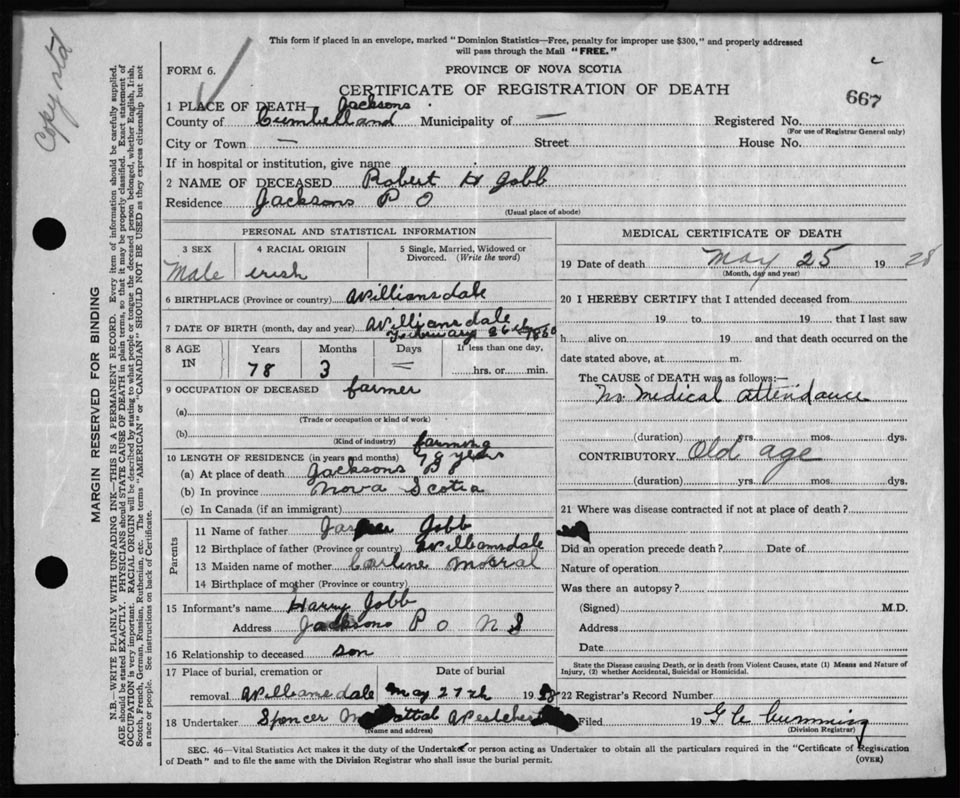 Copy sta
This form if placed in an envelope, marked "Dominion Statistics—Free, penalty for improper use $300," and properly addressed
will pass through the Mail "FREE."
FORM 6.
PROVINCE OF NOVA SCOTIA
CERTIFICATE OF REGISTRATION OF DEATH
667
1 PLACE OF DEATH Jacksons
County of Cumbelland Municipality of — Registered No.
(For use of Registrar General only)
City or Town — Street House No.
If in hospital or institution, give name
2 NAME OF DECEASED Robert H Jobb
Residence Jacksons P O
(Usual place of abode)
MARGIN RESERVED FOR BINDING
N.B.—WRITE PLAINLY WITH UNFADING INK—THIS IS A PERMANENT RECORD. Every item of information should be carefully supplied.
AGE should be stated EXACTLY. PHYSICIANS should STATE CAUSE OF DEATH in plain terms, so that it may be properly classified. Exact statement of
OCCUPATION is very important. RACIAL ORIGIN will be described by stating to what people or tongue the deceased person belonged, whether English, Irish,
Scotch, French, German, Russian, Ruthenian, etc. The terms "AMERICAN" or "CANADIAN" SHOULD NOT BE USED as they express citizenship but not
a race or people. See instructions on back of Certificate.
PERSONAL AND STATISTICAL INFORMATION
3 SEX 4 RACIAL ORIGIN 5 Single, Married, Widowed or
Divorced. (Write the word)
Male irish
6 BIRTHPLACE (Province or country) Williansdale
7 DATE OF BIRTH (month, day and year) Williansdale
February 26th 1860
8 AGE Years Months Days If less than one day,
IN 78 3 — hrs. or min.
9 OCCUPATION OF DECEASED farmer
(a)
(Trade or occupation or kind of work)
(b) farming
(Kind of industry)
10 LENGTH OF RESIDENCE (in years and months) 78 years
(a) At place of death Jacksons
(b) In province Nova Scotia
(c) In Canada (if an immigrant)
Parents
11 Name of father Jobb
12 Birthplace of father (Province or country) Williansdale
13 Maiden name of mother Carline
14 Birthplace of mother (Province or country)
15 Informant's name Harry Jobb
Address Jacksons P O N S
16 Relationship to deceased son
17 Place of burial, cremation or Date of burial
removal Williamsdale May 27th 1938
18 Undertaker Spencer
(Name and address)
MEDICAL CERTIFICATE OF DEATH
19 Date of death May 25 19 28
(Month, day and year)
20 I HEREBY CERTIFY that I attended deceased from
19 to 19 that I last saw
h alive on 19 and that death occurred on the
date stated above, at m.
The CAUSE of DEATH was as follows:—
No medical attendance
(duration) yrs. mos. dys.
CONTRIBUTORY Old age
(duration) yrs. mos. dys.
21 Where was disease contracted if not at place of death?
Did an operation precede death? Date of
Nature of operation
Was there an autopsy?
(Signed) M.D.
Address
Date
State the Disease causing Death, or in death from Violent Causes, state (1) Means and Nature of
Injury, (2) whether Accidental, Suicidal or Homicidal.
22 Registrar's Record Number
Filed 19 G W Cumming
(Division Registrar)
SEC. 46—Vital Statistics Act makes it the duty of the Undertaker or person acting as Undertaker to obtain all the particulars required in the "Certificate of Registration
of Death" and to file the same with the Division Registrar who shall issue the burial permit.
(OVER)